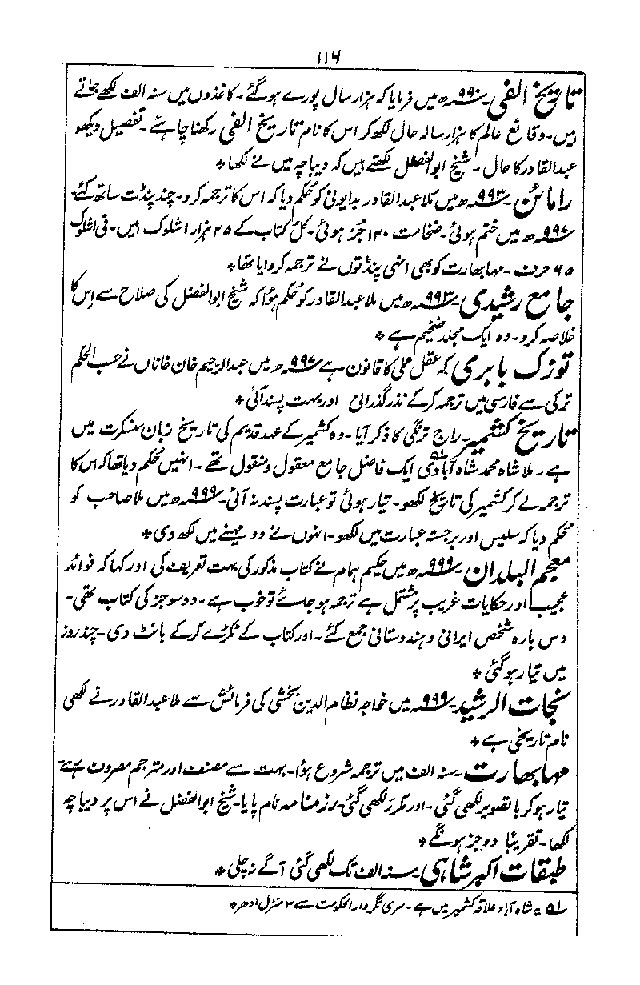 ۱۱۶
تاریخ الفی ۹۹۰ھ میں فرمایا کہ ہزار سال پورے ہو گئے۔ کاغذوں میں سنہ الف لکھے جاتے
ہیں۔ وقائع عالم کا ہزار سالہ حال لکھ کر اس کا نام تاریخ الفی رکھنا چاہئے۔ تفصیل دیکھو
عبدالقادر کا حال۔ شیخ ابوالفضل لکھتے ہیں کہ دیباچہ میں نے لکھا*
رامائن ۹۹۳ھ میں ملا عبدالقادر بدایونی کو حکم دیا کہ اس کا ترجمہ کرو۔ چند پنڈت ساتھ کئے۔
۹۹۷ھ میں ختم ہوئی۔ ضخامت ۱۲۰ جز ہوئی۔ کل کتاب کے ۲۵ ہزار اشلوک ہیں۔ فی اشلوک
۶۵ حرف۔ مہابھارت کو بھی انہی پنڈتوں نے ترجمہ کروایا تھا*
جامع رشیدی ۹۹۳ھ میں ملا عبدالقادر کو حکم ہوا کہ شیخ ابوالفضل کی صلاح سے اس کا
خلاصہ کرو۔ وہ ایک مجلد ضخیم ہے*
توزک بابری کہ عقل عملی کا قانون ہے ۹۹۷ھ میں عبدالرحیم خان خاناں نے حسب الحکم
ترکی سے فارسی میں ترجمہ کر کے نذر گذرانی اور بہت پسند آئی*
تاریخ کشمیر۔ راج ترنگی کا ذکر آیا۔ وہ کشمیر کے عہد قدیم کی تاریخ زبان سنسکرت میں
ہے۔ ملا شاہ محمد شاہ آبادی ایک فاضل جامع معقول و منقول تھے۔ انہیں حکم دیا تھا کہ اس کا
ترجمہ لے کر کشمیر کی تاریخ لکھو۔ تیار ہوئی تو عبارت پسند نہ آئی۔ ۹۹۹ھ میں ملا صاحب کو
حکم دیا کہ سلیس اور برجستہ عبارت میں لکھو۔ انہوں نے دو مہینے میں لکھ دی*
معجم البلدان ۹۹۹ھ میں حکیم ہمام نے کتاب مذکور کی بہت تعریف کی اور کہا کہ فوائد
عجیب اور حکایات غریب پر مشتمل ہے ترجمہ ہو جائے تو خوب ہے۔ دو سو جز کی کتاب تھی۔
دس بارہ شخص ایرانی و ہندوستانی جمع کئے۔ اور کتاب کے ٹکڑے کر کے بانٹ دی۔ چند روز
میں تیار ہو گئی*
نجات الرشید ۹۹۹ھ میں خواجہ نظام الدین بخشی کی فرمائش سے ملا عبدالقادر نے لکھی
نام تاریخی ہے*
مہابھارت۔ سنہ الف میں ترجمہ شروع ہوا۔ بہت سے مصنف اور مترجم مصروف رہے
تیار ہو کر با تصویر لکھی گئی۔ اور مکرر لکھی گئی۔ رزمنامہ نام پایا۔ شیخ ابوالفضل نے اس پر دیباچہ
لکھا۔ تقریباً دو جز ہو گئے*
طبقات اکبر شاہی سنہ الف تک لکھی گئی آگے نہ چلی*
۵۱ شاہ آباد علاقہ کشمیر میں ہے۔ سری نگر دارالحکومت سے ۲ منزل ادھر*